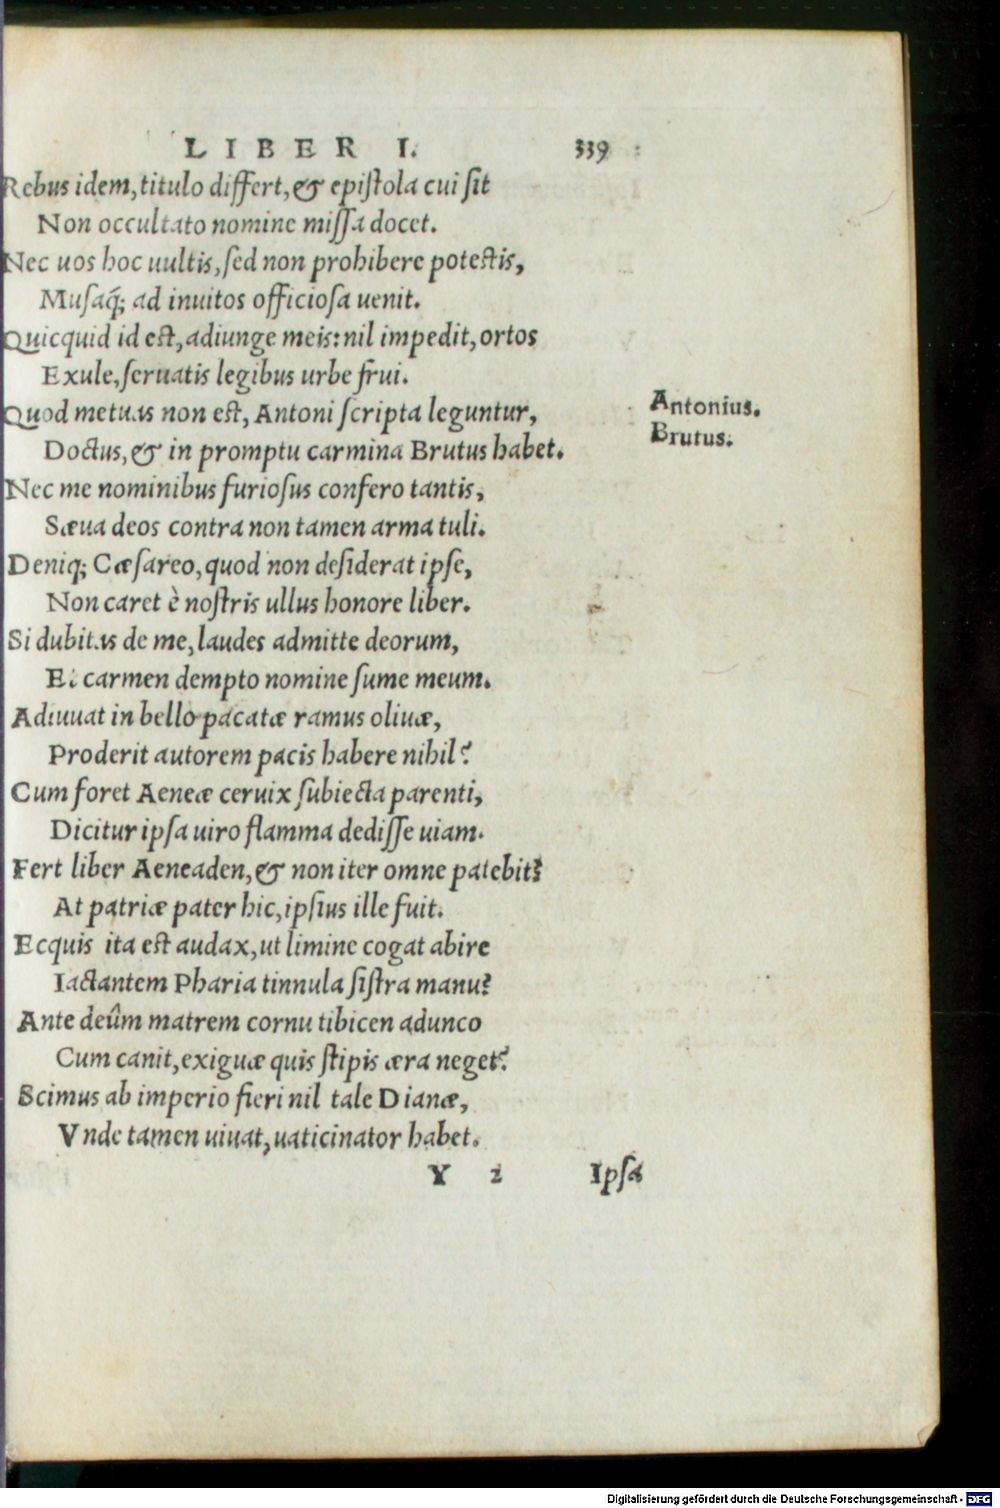 LIBER I. 339
Rebus idem, titulo differt, & epiſtola cui ſit
Non occultato nomine miſſa docet.
Nec uos hoc uultis, ſed non prohibere poteſtis,
Muſaq́; ad inuitos officioſa uenit.
Quicquid id eſt, adiunge meis: nil impedit, ortos
Exule, ſeruatis legibus urbe frui.
Quod metuas non eſt, Antoni ſcripta leguntur,
Antonius.
Doctus, & in promptu carmina Brutus habet.
Brutus.
Nec me nominibus furioſus confero tantis,
Sæua deos contra non tamen arma tuli.
Deniq; Cæſareo, quod non deſiderat ipſe,
Non caret è noſtris ullus honore liber.
Si dubitas de me, laudes admitte deorum,
Et carmen dempto nomine ſume meum.
Adiuuat in bello pacatæ ramus oliuæ,
Proderit autorem pacis habere nihil?
Cum foret Aeneæ ceruix ſubiecta parenti,
Dicitur ipſa uiro flamma dediſſe uiam.
Fert liber Aeneaden, & non iter omne patebit?
At patriæ pater hic, ipſius ille fuit.
Ecquis ita eſt audax, ut limine cogat abire
Iactantem Pharia tinnula ſiſtra manu?
Ante deûm matrem cornu tibicen adunco
Cum canit, exiguæ quis ſtipis æra neget?
Scimus ab imperio fieri nil tale Dianæ,
Vnde tamen uiuat, uaticinator habet.
Y 2 Ipſa
Digitalisierung gefördert durch die Deutsche Forschungsgemeinschaft - DFG